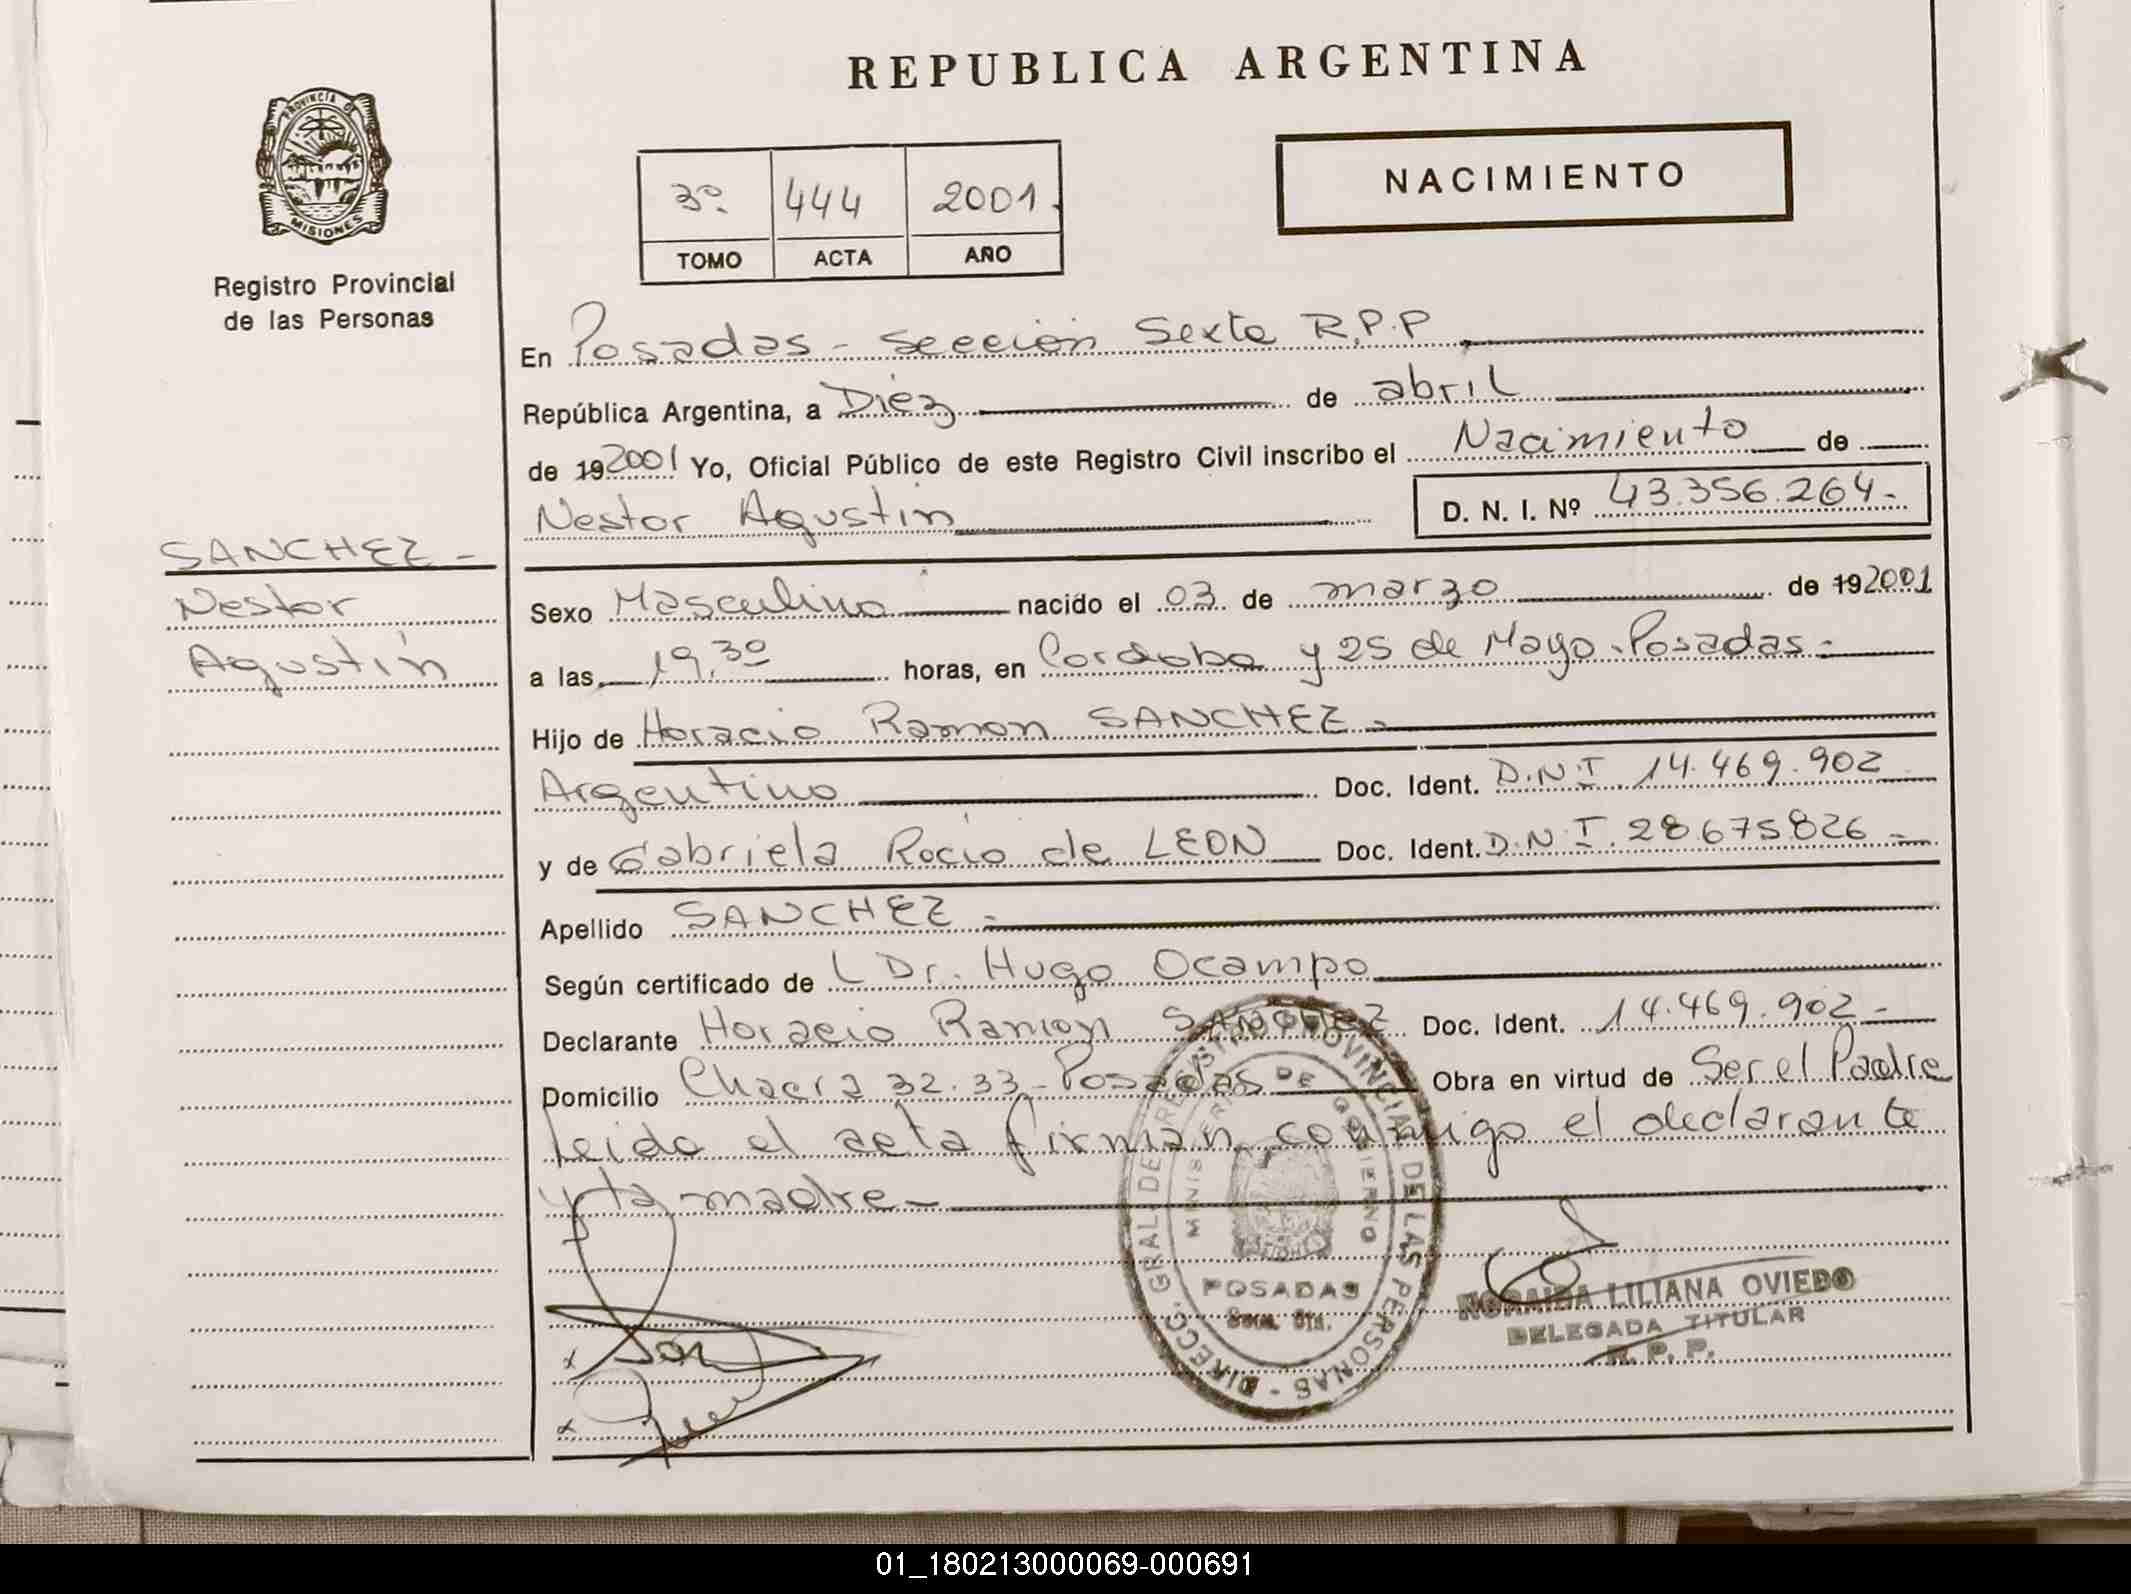 REPUBLICA ARGENTINA
PROVINCIA DE
MISIONES
Registro Provincial
de las Personas
3º 444 2001.
TOMO ACTA AÑO
NACIMIENTO
En Posadas - Sección Sexta R.P.P.
República Argentina, a Diéz de abril
de 19 2001 Yo, Oficial Público de este Registro Civil inscribo el Nacimiento de
Nestor Agustin D. N. I. Nº 43.356.264-
SANCHEZ -
Nestor
Agustín
Sexo Masculino nacido el 03 de marzo de 19 2001
a las 19,30 horas, en Cordoba y 25 de Mayo. Posadas -
Hijo de Horacio Ramon SANCHEZ -
Argentino Doc. Ident. D.N.I. 14.469.902
y de Gabriela Rocio de LEON Doc. Ident. D.N.I. 28.675826 -
Apellido SANCHEZ -
Según certificado de L Dr. Hugo Ocampo
Declarante Horacio Ramon SANCHEZ Doc. Ident. 14.469.902 -
Domicilio Chacra 32.33 - Posadas Obra en virtud de Ser el Padre
Leida el acta firman conmigo el declarante
y la madre -
DIRECC. GRAL. DE REGISTRO PROVINCIAL DE LAS PERSONAS -
MINISTERIO DE GOBIERNO
POSADAS
Secc. 6ta.
NORAIDA LILIANA OVIEDO
DELEGADA TITULAR
R. P. P.
01_180213000069-000691